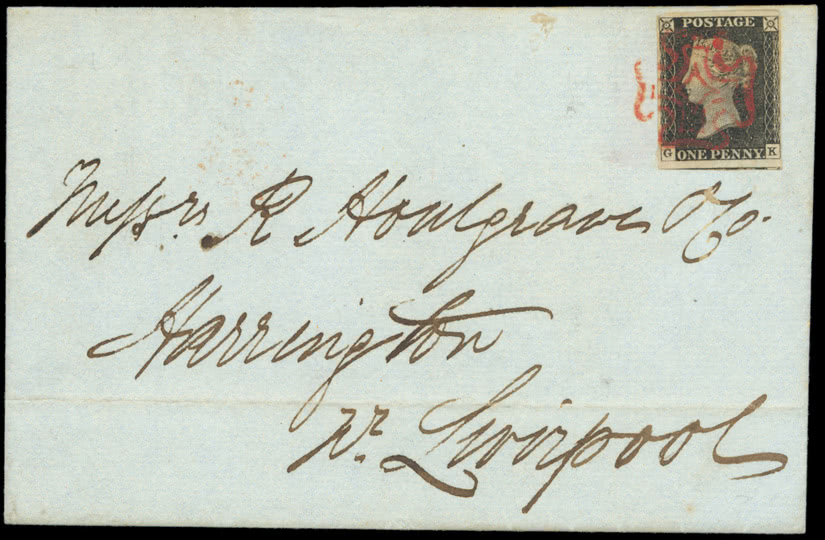 POSTAGE
G ONE PENNY K
Messrs. R Houlgrave & Co.
Harrington
Nr. Liverpool